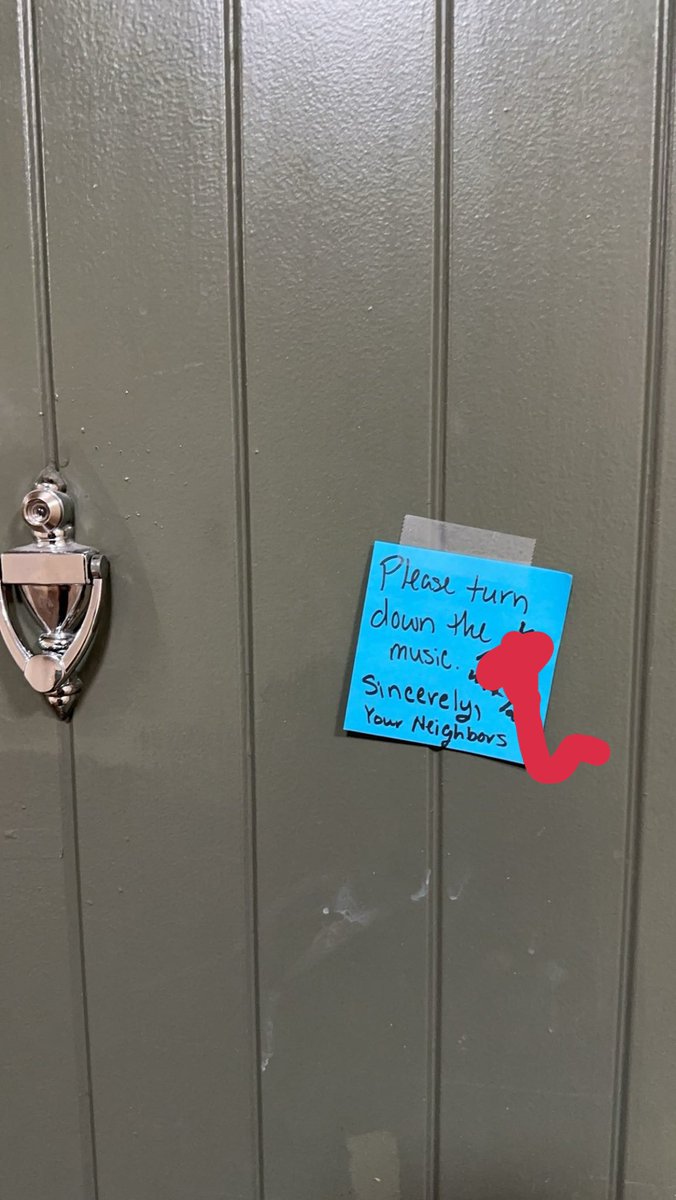 Please turn
down the
music.
Sincerely,
Your Neighbors